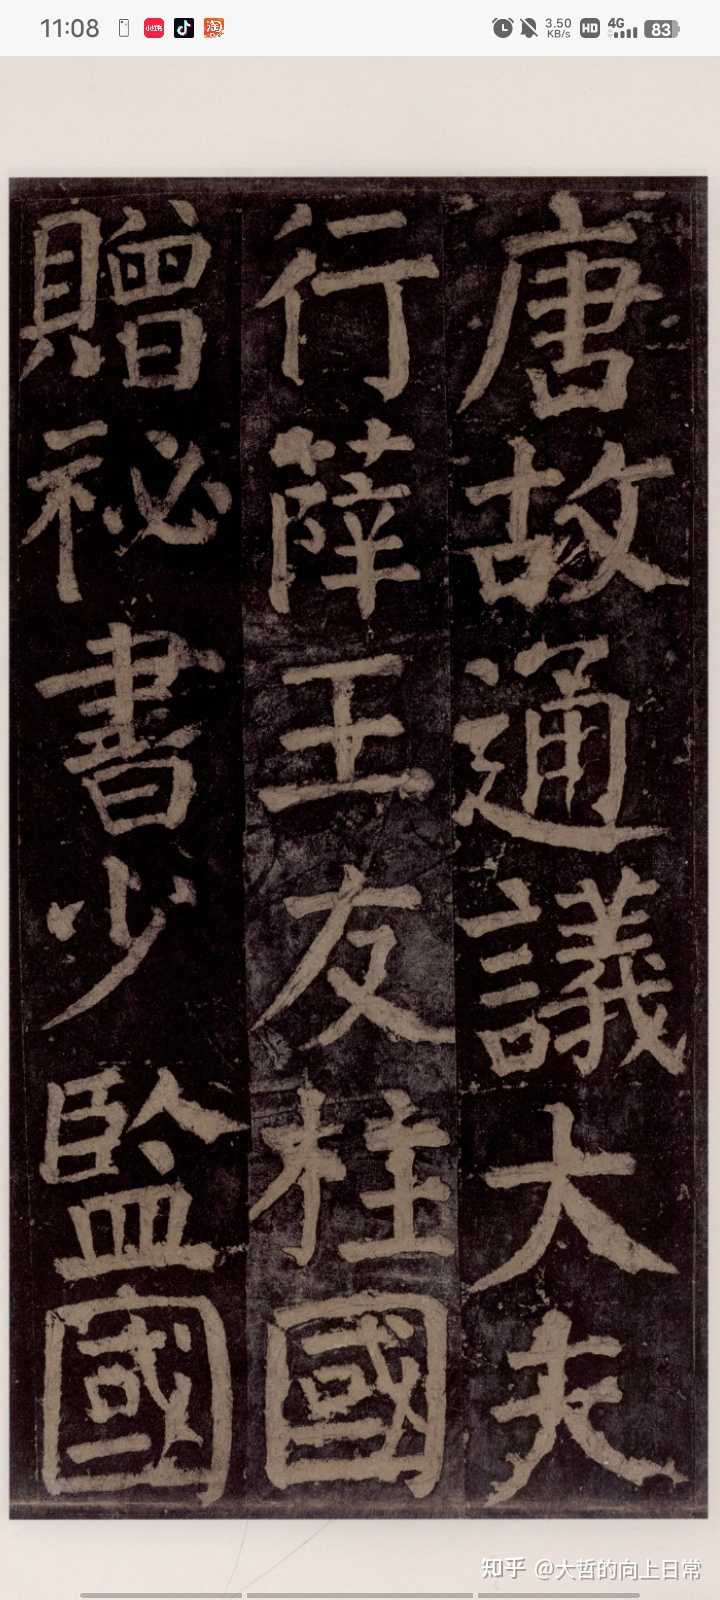 11:08
小红书
淘
3.50 KB/s
HD
4G
83
唐故通議大夫
行薛王友柱國
贈祕書少監國
知乎 @大哲的向上日常